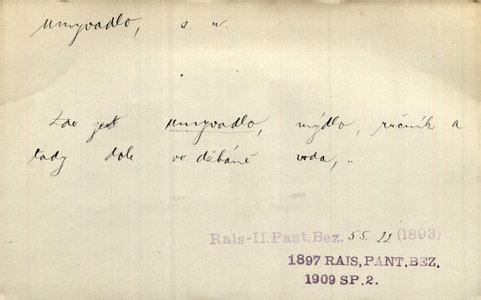 umyvadlo, s. n.
Zde jest umyvadlo, mýdlo, ručník a
tady dole ve džbáně voda, „
Rais-II.Pant.Bez. 55. 22 (1893)
1897 RAIS, PANT. BEZ.
1909 SP. 2.